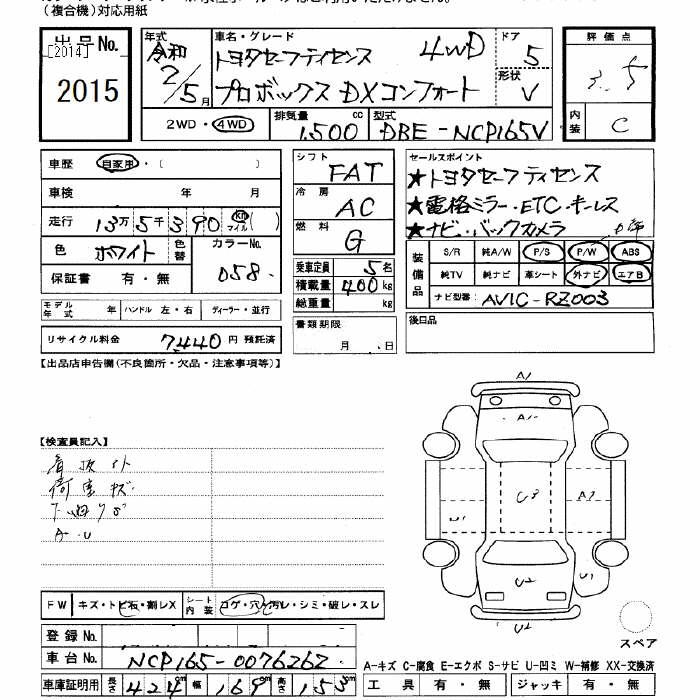 (複合機)対応用紙
出品No.
[2014]
2015
年式 令和 2/5月
車名・グレード
トヨタセーフティセンス 4WD
プロボックス DXコンフォート
ドア 5
形状 V
評価点 3.5
内装 C
2WD・4WD
排気量 1,500 cc
型式 DBE-NCP165V
車歴 自家用・( )
車検 年 月
走行 13万5千390 km マイル ( )
色 ホワイト 色替
カラーNo. 058
保証書 有・無
モデル年式 年 ハンドル 左・右 ディーラー・並行
リサイクル料金 7,440円 預託済
シフト FAT
冷房 AC
燃料 G
乗車定員 5名
積載量 400kg
総重量 kg
書類期限
月 日
セールスポイント
★トヨタセーフティセンス
★電格ミラー・ETC・キーレス
★ナビ・バックカメラ
装備品
S/R 純A/W P/S P/W ABS
純TV 純ナビ 革シート 外ナビ エアB
ナビ型番 AVIC-RZ003
後日品
【出品店申告欄(不良箇所・欠品・注意事項等)】
【検査員記入】
荷室キズ
A・U
A1
A1
U3
A2
U1
U2
U1
U2
スペア
FW キズ・トビ石・割レX
シート内装 コゲ・穴・汚レ・シミ・破レ・スレ
登録No.
車台No. NCP165-0076262
車庫証明用 長さ 424cm 幅 169cm 高さ 153cm
A-キズ C-腐食 E-エクボ S-サビ U-凹ミ W-補修 XX-交換済
工具 有・無 ジャッキ 有・無